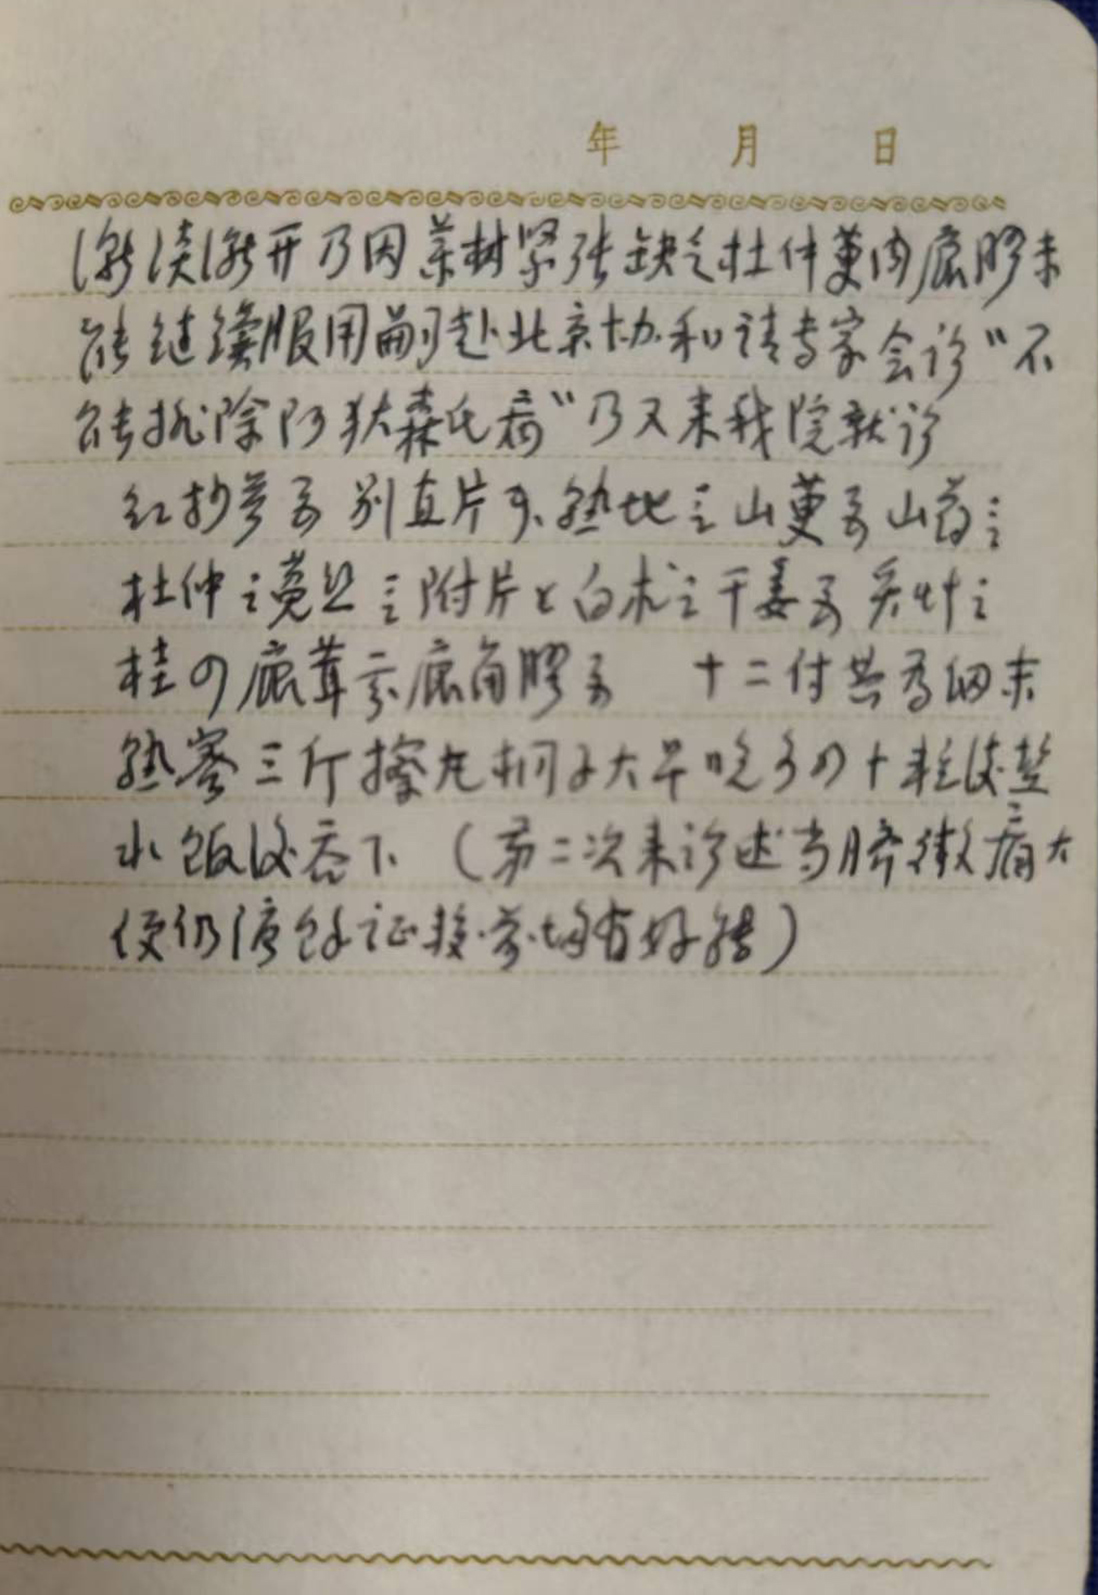 年 月 日
渐淡渐开乃因药材紧张缺乏杜仲萸肉鹿胶未
能继续服用嗣赴北京协和请专家会诊“不
能排除阿狄森氏病”乃又来我院就诊
红抄参 别直片 熟地 山萸 山药
杜仲 菟丝 附片 白术 干姜 炙草
桂 鹿茸 鹿角膠 十二付共为细末
熟蜜三斤擦丸桐子大早晚各四十粒淡盐
水饭后吞下（第二次来诊述当脐微痛大
便仍溏余证接前均有好转）